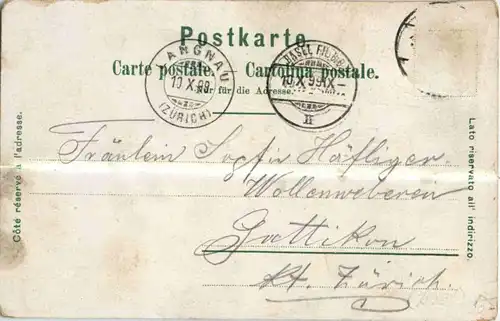 Postkarte.
Carte postale. Cartolina postale.
Nur für die Adresse.
LANGNAU
10 X 99
(ZÜRICH)
BASEL
10.X.99.IX-
II
Côté réservé à l'adresse.
Lato riservato all' indirizzo.
Fräulein Sophie Häfliger
Wollenweberei
Gattikon
Kt. Zürich.